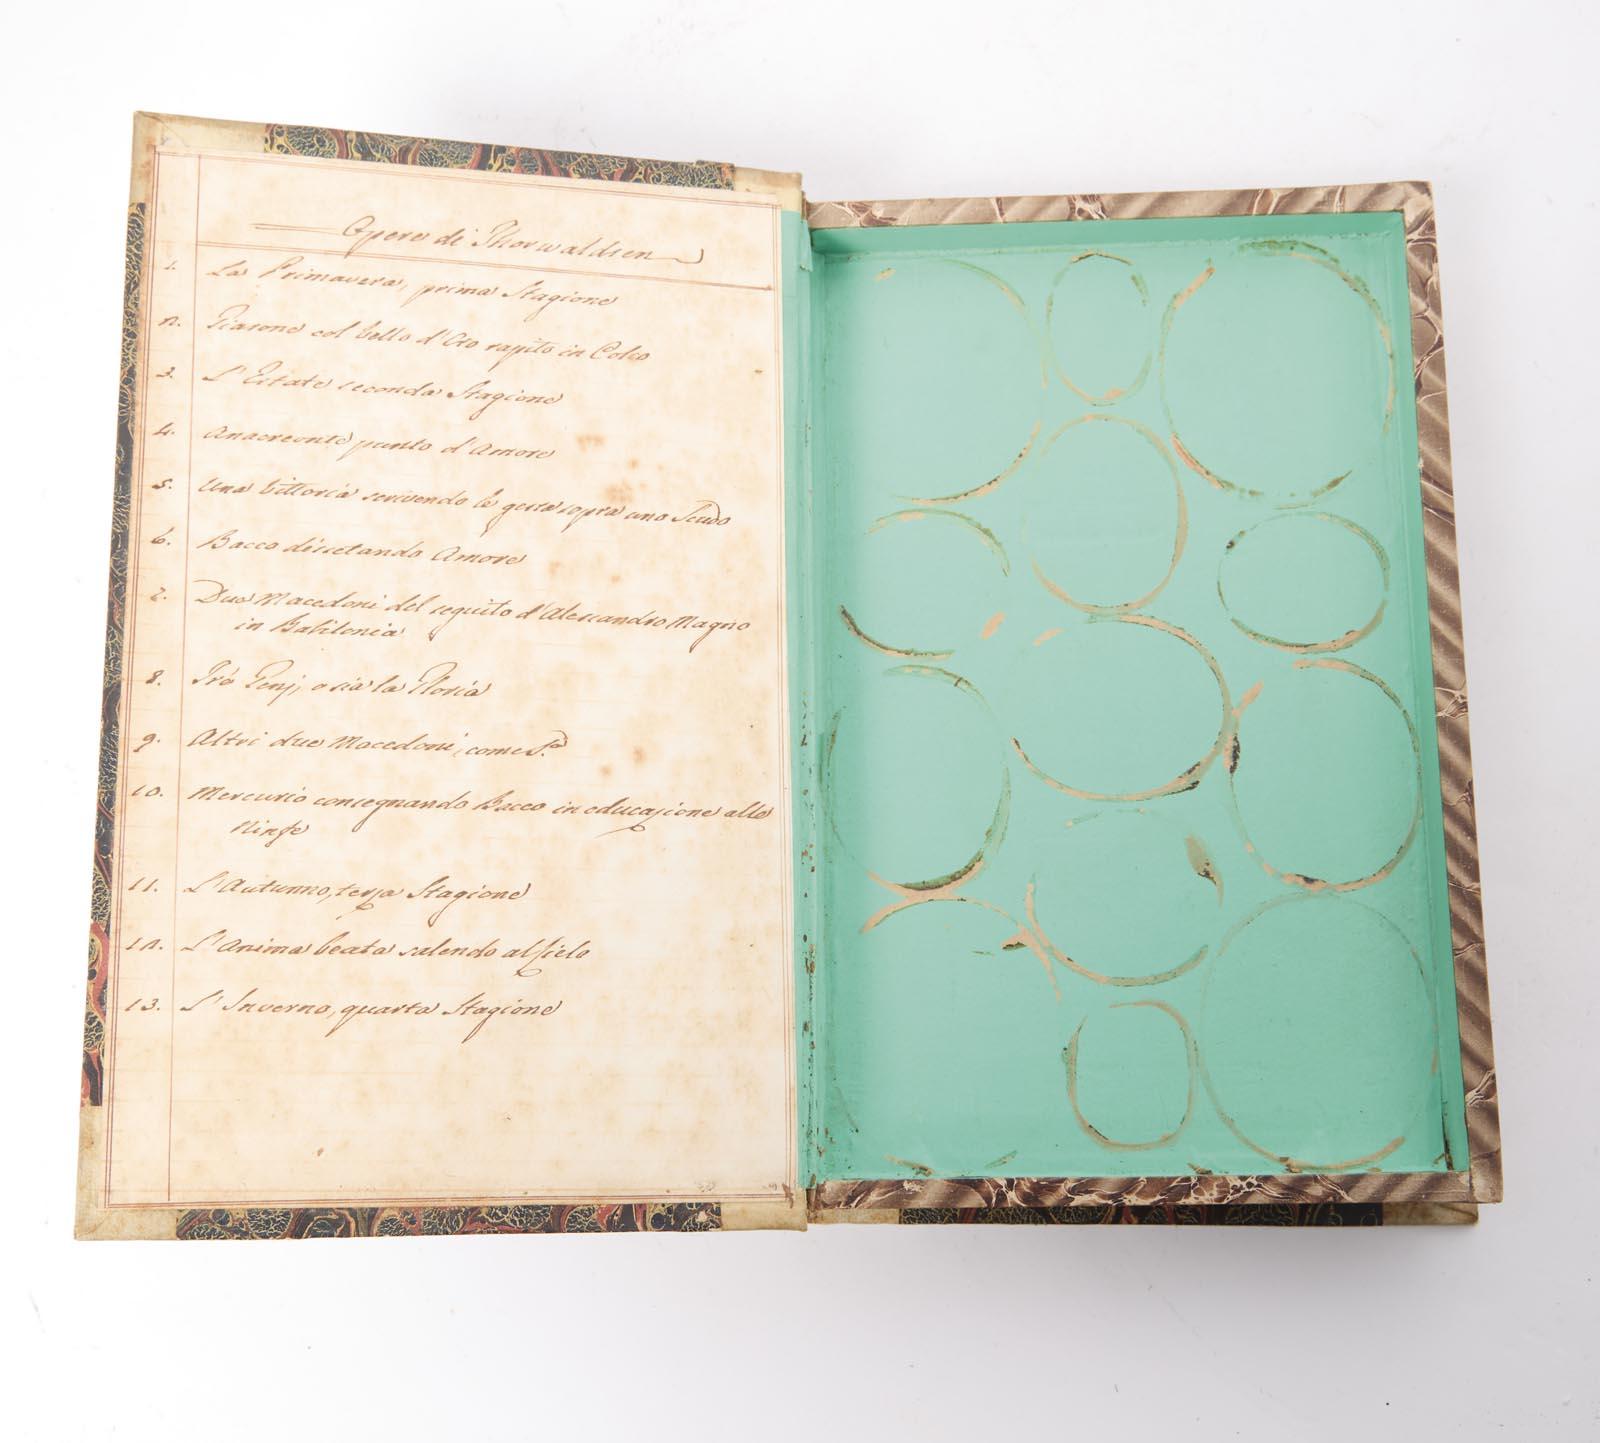 Opere di Thorwaldsen
1. La Primavera, prima Stagione
2. Giasone col bello d'Oro rapito in Colco
3. L'Estate seconda Stagione
4. Anacreonte punto d'Amore
5. Una Vittoria scrivendo le gesta sopra uno Scudo
6. Bacco dissetando Amore
7. Due Macedoni del seguito d'Alessandro Magno
in Babilonia
8. Tré Genj, o sia la Gloria
9. Altri due Macedoni, come S.ª
10. Mercurio consegnando Bacco in educazione alle
Ninfe
11. L'Autunno, terza Stagione
12. L'Anima beata salendo al Cielo
13. L'Inverno, quarta Stagione